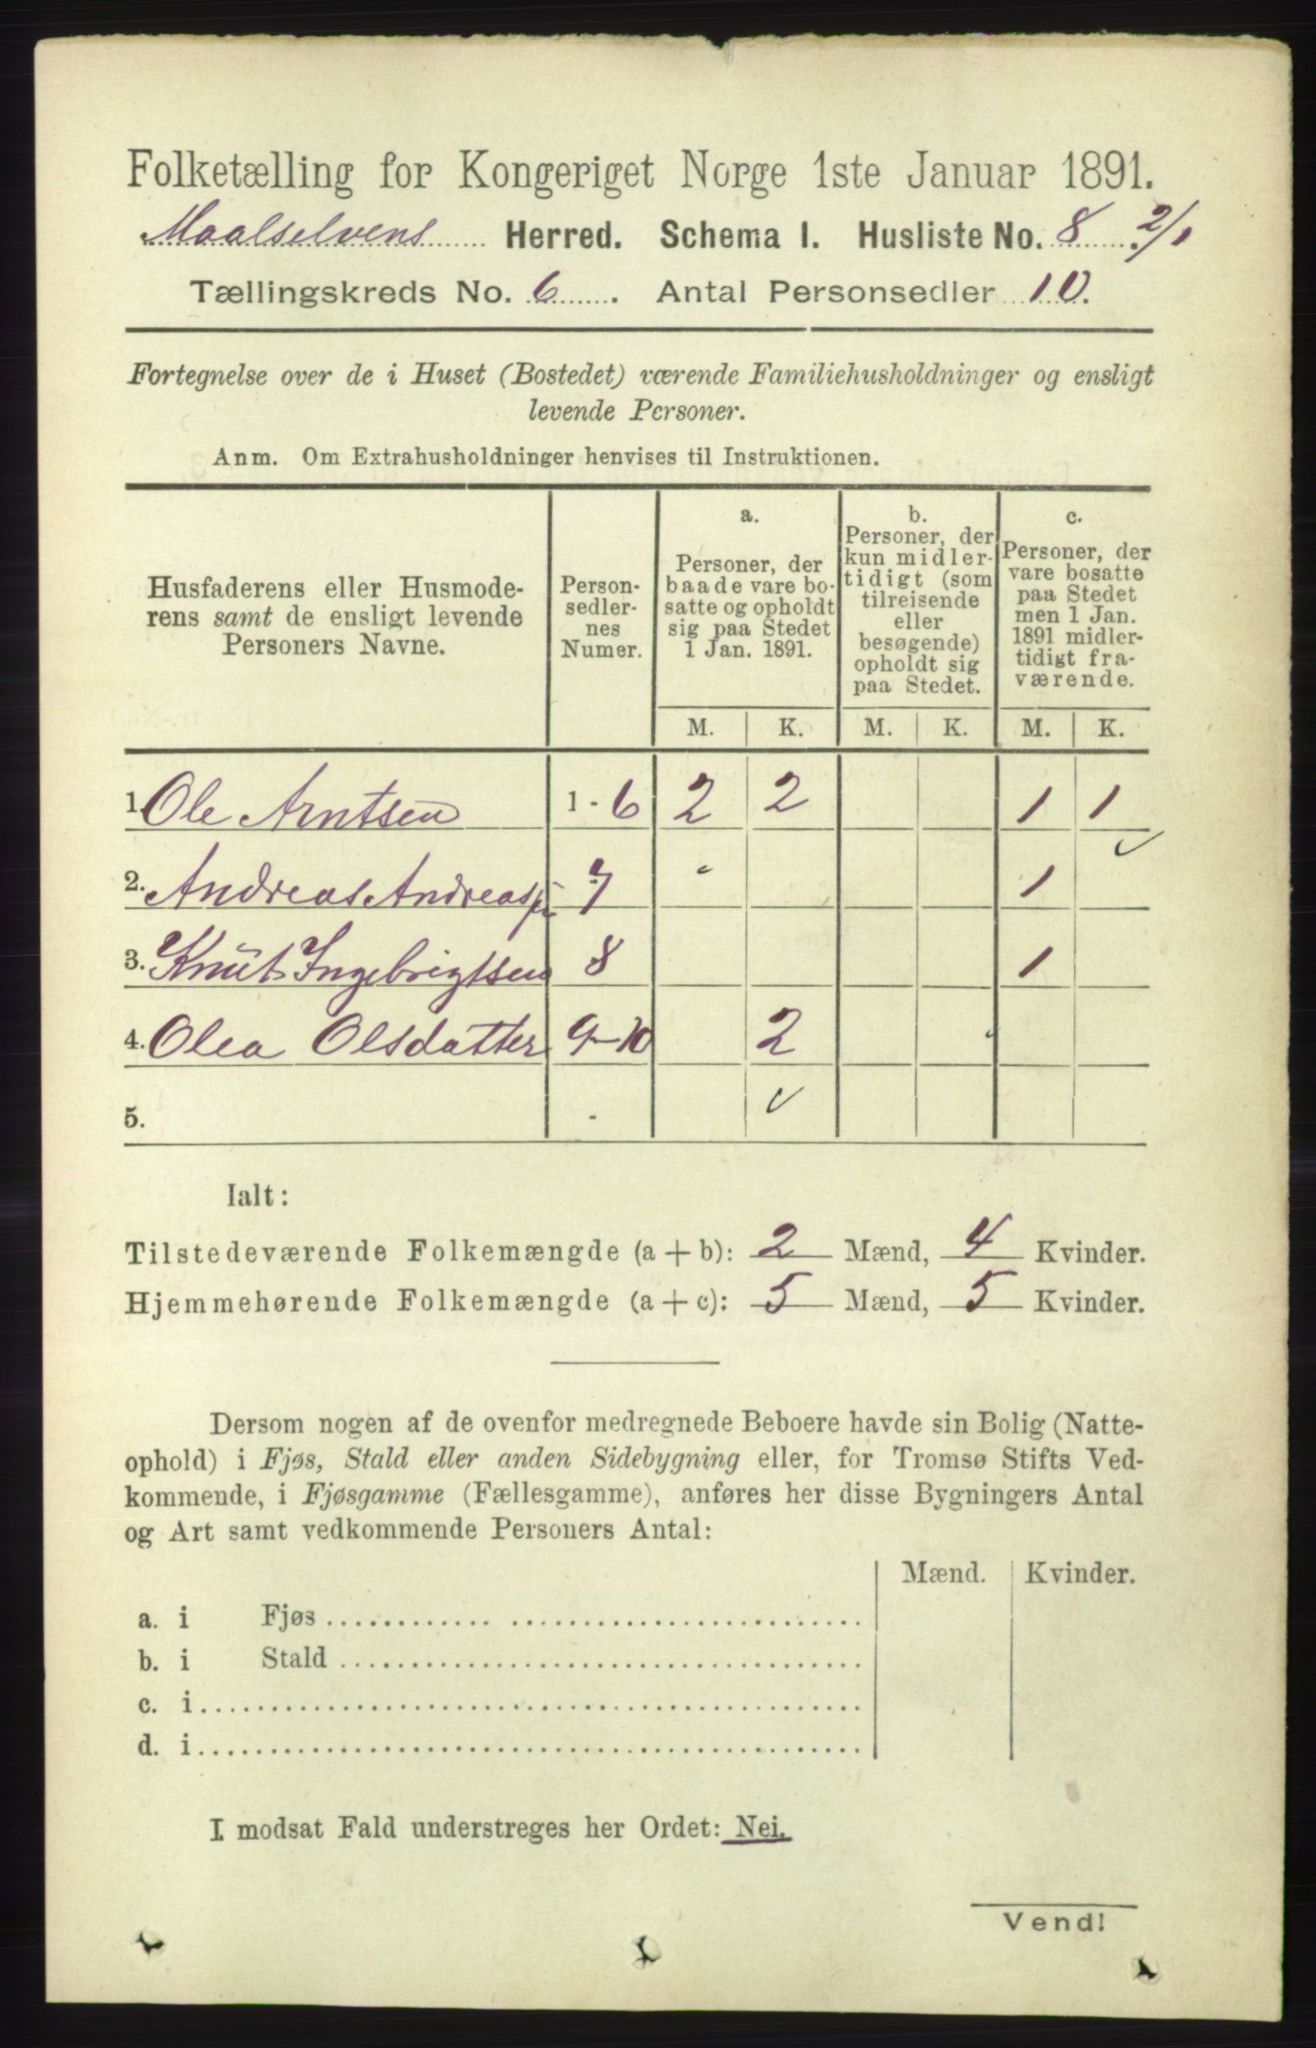 Folketælling for Kongeriget Norge 1ste Januar 1891.
Maalselvens Herred. Schema I. Husliste No. 8 2/1
Tællingskreds No. 6. Antal Personsedler 10.
Fortegnelse over de i Huset (Bostedet) værende Familiehusholdninger og ensligt
levende Personer.
Anm. Om Extrahusholdninger henvises til Instruktionen.
Husfaderens eller Husmode-
rens samt de ensligt levende
Personers Navne.
Person-
sedler-
nes
Numer.
a.
Personer, der
baade vare bo-
satte og opholdt
sig paa Stedet
1 Jan. 1891.
b.
Personer, der
kun midler-
tidigt (som
tilreisende
eller
besøgende)
opholdt sig
paa Stedet.
c.
Personer, der
vare bosatte
paa Stedet
men 1 Jan.
1891 midler-
tidigt fra-
værende.
M. K. M. K. M. K.
1. Ole Arntsen 1 - 6 2 2 1 1
2. Andreas Andreas 7 1
3. Knut Ingebrigtsen 8 1
4. Olea Olsdatter 9-10 2
5.
Ialt:
Tilstedeværende Folkemængde (a + b): 2 Mænd, 4 Kvinder.
Hjemmehørende Folkemængde (a + c): 5 Mænd, 5 Kvinder.
Dersom nogen af de ovenfor medregnede Beboere havde sin Bolig (Natte-
ophold) i Fjøs, Stald eller anden Sidebygning eller, for Tromsø Stifts Ved-
kommende, i Fjøsgamme (Fællesgamme), anføres her disse Bygningers Antal
og Art samt vedkommende Personers Antal:
Mænd. Kvinder.
a. i Fjøs
b. i Stald
c. i
d. i
I modsat Fald understreges her Ordet: Nei.
Vend!